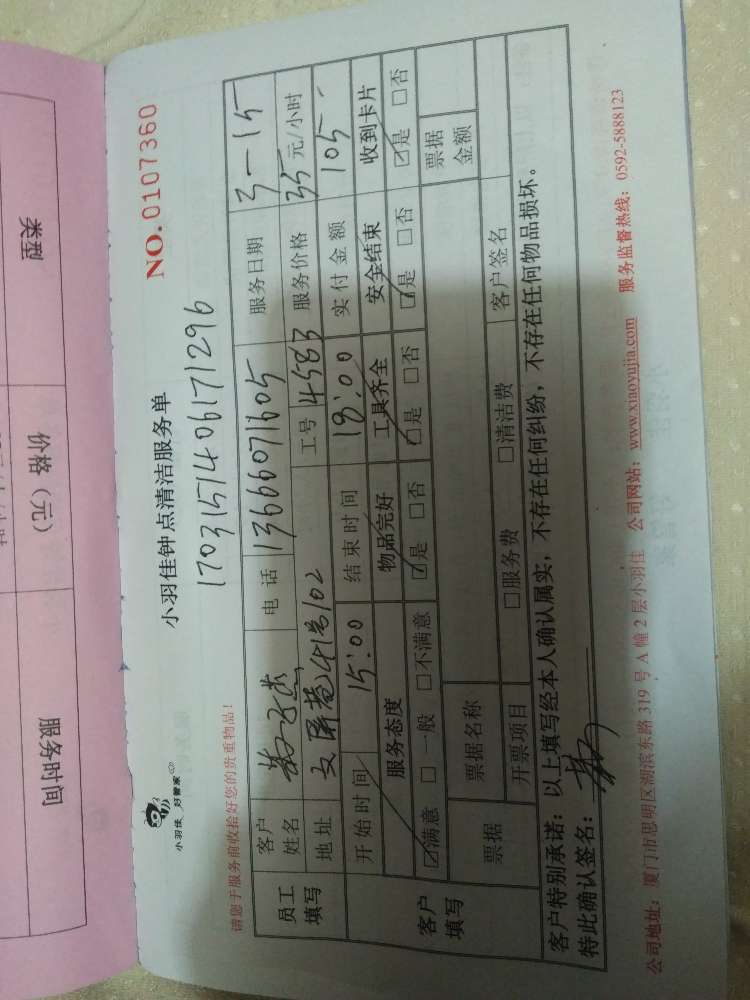 类型
价格（元）
服务时间
小羽佳 好管家
小羽佳钟点清洁服务单
NO.0107360
1703151406171296
请您于服务前收拾好您的贵重物品！
员工填写
客户姓名 电话 13666071605 服务日期 3-15
地址 41号102 工号 4583 服务价格 35元/小时
开始时间 15:00 结束时间 18:00 实付金额 105.
客户填写
服务态度 物品完好 工具齐全 安全结束 收到卡片
☑满意 □一般 □不满意 ☑是 □否 ☑是 □否 ☑是 □否 ☑是 □否
票据 票据名称 票据金额
开票项目 □服务费 □清洁费 客户签名
客户特别承诺：以上填写经本人确认属实，不存在任何纠纷，不存在任何物品损坏。
特此确认签名：
公司地址：厦门市思明区湖滨东路319号A幢2层小羽佳 公司网站：www.xiaoyujia.com 服务监督热线：0592-5888123